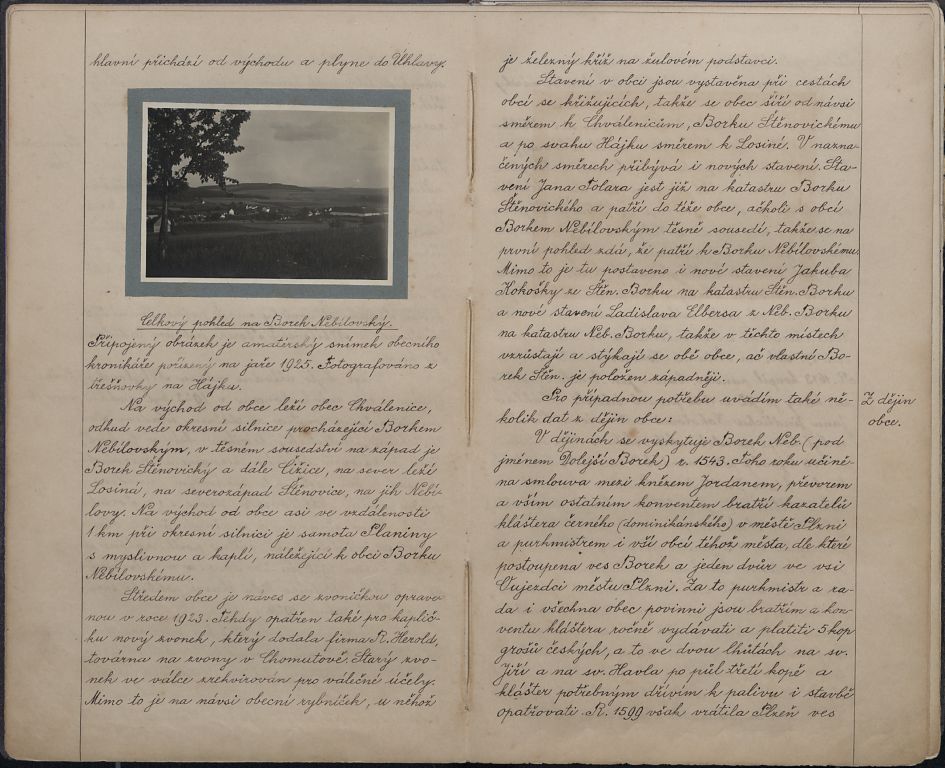 hlavní přichází od východu a plyne do Úhlavy.
Celkový pohled na Borek Nebílovský.
Připojený obrázek je amatérský snímek obecního
kronikáře pořízený na jaře 1925. Fotografováno z
třešňovky na Hájku.
Na východ od obce leží obec Chválenice,
odkud vede okresní silnice procházející Borkem
Nebílovským, v těsném sousedství na západ je
Borek Štěnovický a dále Čižice, na sever leží
Losiná, na severozápad Štěnovice, na jih Nebí-
lovy. Na východ od obce asi ve vzdálenosti
1 km při okresní silnici je samota Planiny
s myslivnou a kaplí, náležející k obci Borku
Nebílovskému.
Středem obce je náves se zvoničkou oprave-
nou v roce 1923. Tehdy opatřen také pro kaplič-
ku nový zvonek, který dodala firma R. Herold,
továrna na zvony v Chomutově. Starý zvo-
nek ve válce zrekvirován pro válečné účely.
Mimo to je na návsi obecní rybníček, u něhož
je železný kříž na žulovém podstavci.
Stavení v obci jsou vystavěna při cestách
obcí se křižujících, takže se obec šíří od návsi
směrem k Chválenicům, Borku Štěnovickému
a po svahu Hájku směrem k Losiné. V nazna-
čených směrech přibývá i nových stavení. Sta-
vení Jana Tolara jest již na katastru Borku
Štěnovického a patří do téže obce, ačkoli s obcí
Borkem Nebílovským těsně sousedí, takže se na
první pohled zdá, že patří k Borku Nebílovskému.
Mimo to je tu postaveno i nové stavení Jakuba
Kokošky ze Štěn. Borku na katastru Štěn. Borku
a nové stavení Ladislava Elbersa z Neb. Borku
na katastru Neb. Borku, takže v těchto místech
vzrůstají a stýkají se obě obce, ač vlastní Bo-
rek Štěn. je položen západněji.
Pro případnou potřebu uvádím také ně-
kolik dat z dějin obce:
Z dějin
obce.
V dějinách se vyskytuje Borek Neb. (pod
jménem Dolejší Borek) r. 1543. Toho roku učině-
na smlouva mezi knězem Jordanem, převorem
a vším ostatním konventem bratří kazatelů
kláštera černého (dominikánského) v městě Plzni
a purkmistrem i vší obcí téhož města, dle které
postoupena ves Borek a jeden dvůr ve vsi
Oujezdci městu Plzni. Za to purkmistr a ra-
da i všechna obec povinni jsou bratřím a kon-
ventu kláštera ročně vydávati a platiti 5 kop
grošů českých, a to ve dvou lhůtách na sv.
Jiří a na sv. Havla po půl třetí kopě a
klášter potřebným dřívím k palivu i stavbě
opatřovati. R. 1599 však vrátila Plzeň ves